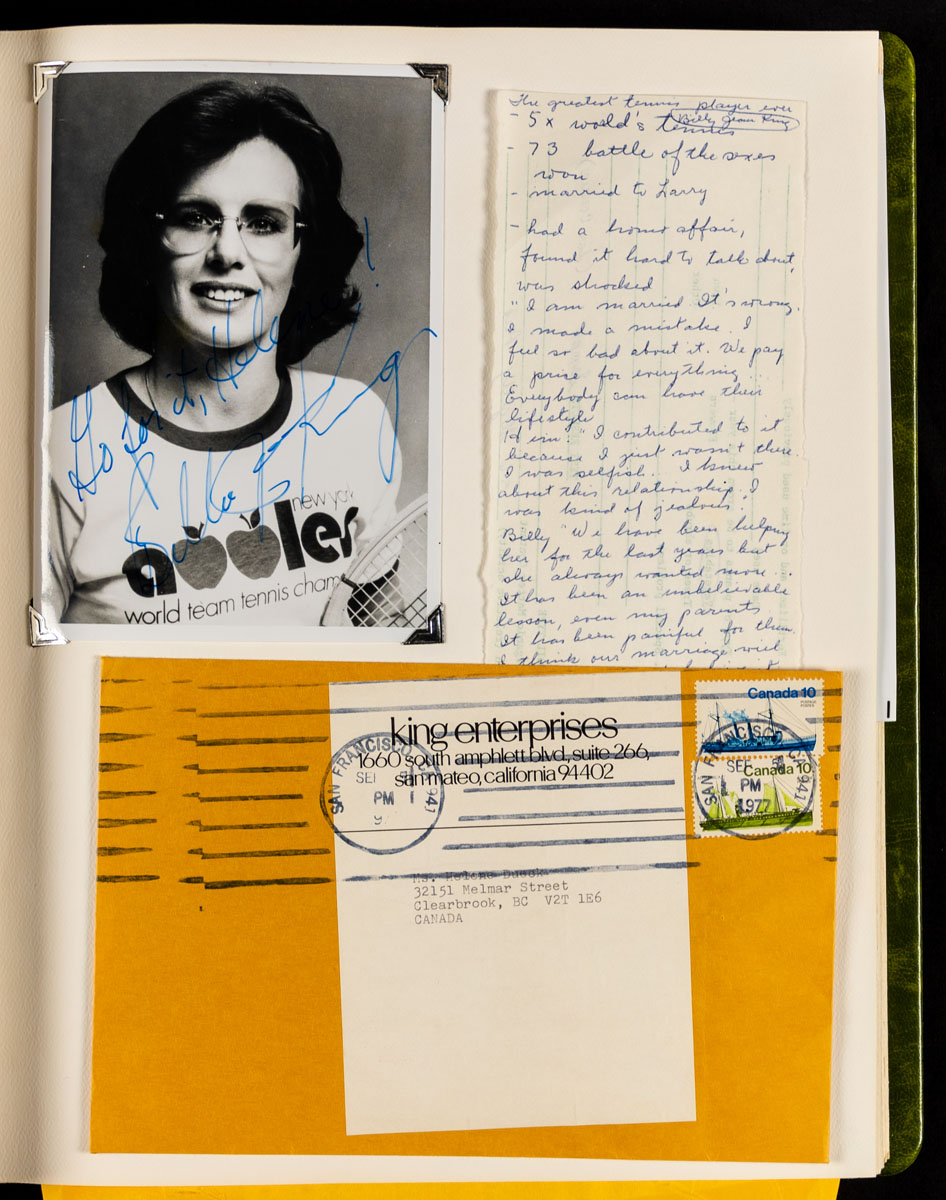 Go for it, Helene!
Billie Jean King
new york
apples
world team tennis cham
The greatest tennis player ever
Billy Jean King
- 5 x world's tennis
- 73 battle of the sexes
won
- married to Larry
- had a homo affair,
found it hard to talk about,
was shocked
"I am married It's wrong.
I made a mistake. I
feel so bad about it. We pay
a price for everything...
Everybody can have their
lifestyle
Him: "I contributed to it
because I just wasn't there.
I was selfish. I knew
about this relationship. I
was kind of jealous."
Billy "We have been helping
her for the last years but
she always wanted more.
It has been an unbelievable
lesson, even my parents
It has been painful for them.
I think our marriage will
king enterprises
1660 south amphlett blvd, suite 266,
san mateo, california 94402
SAN FRANCISCO, CA 941
SEP
PM
Canada 10
POSTAGE
POSTES
Canada 10
SAN FRANCISCO, CA 941
SEP
PM
1977
Ms. Helene Dueck
32151 Melmar Street
Clearbrook, BC V2T 1E6
CANADA